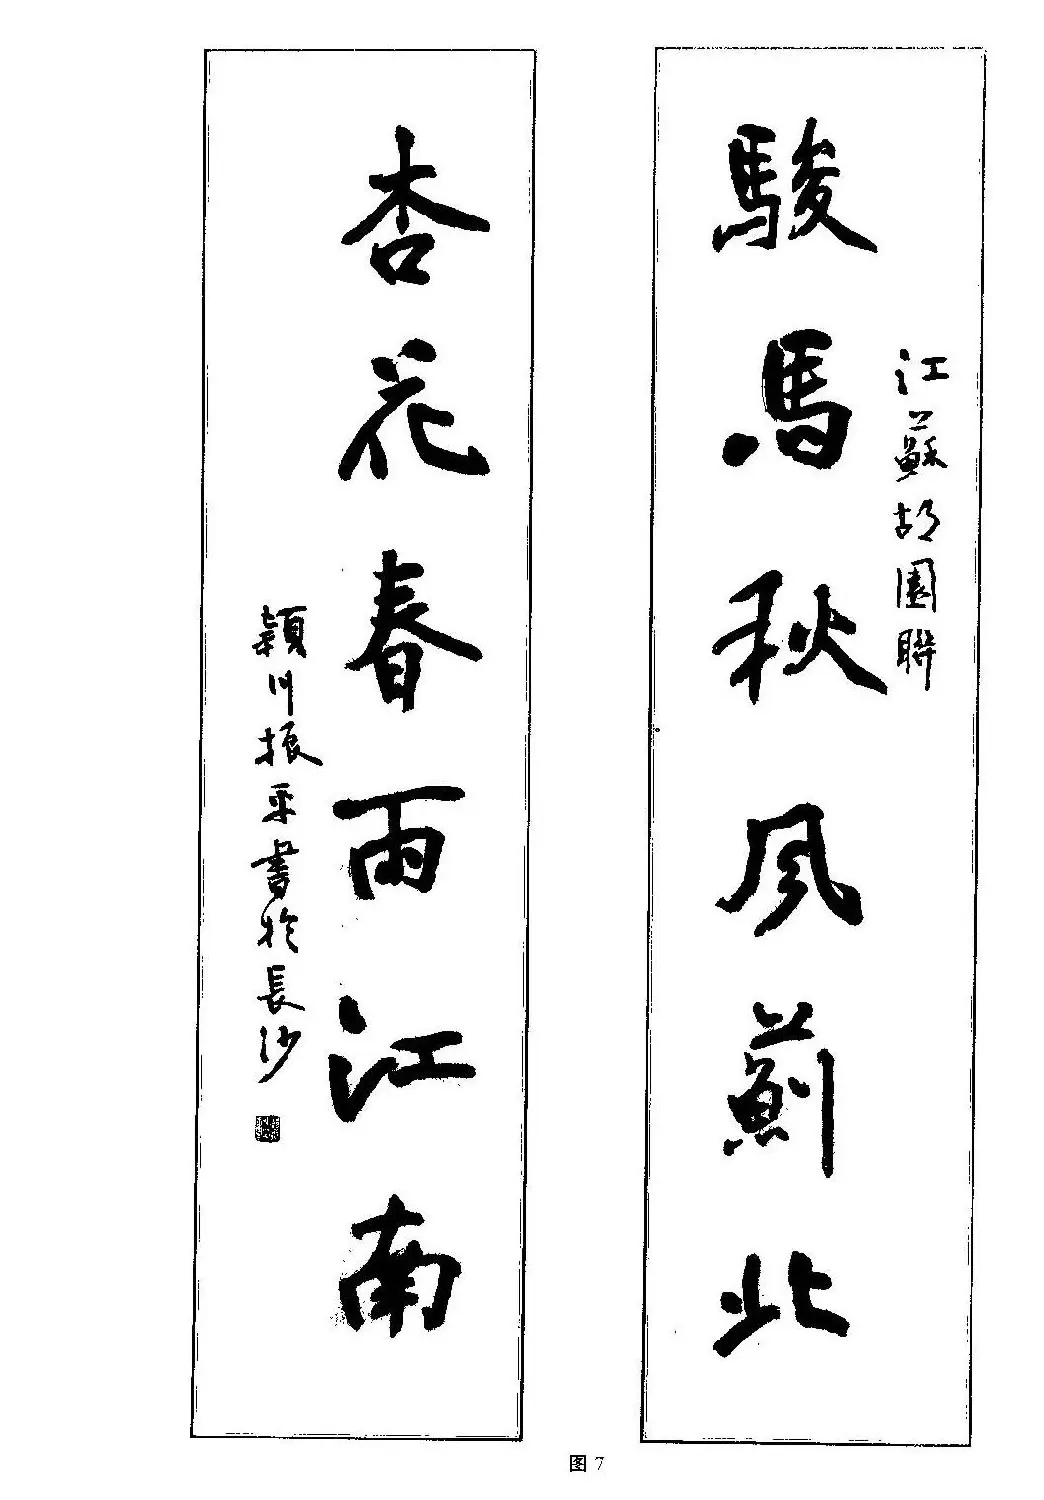 駿馬秋風薊北
江蘇胡園聯
杏花春雨江南
穎川振平書於長沙
图 7